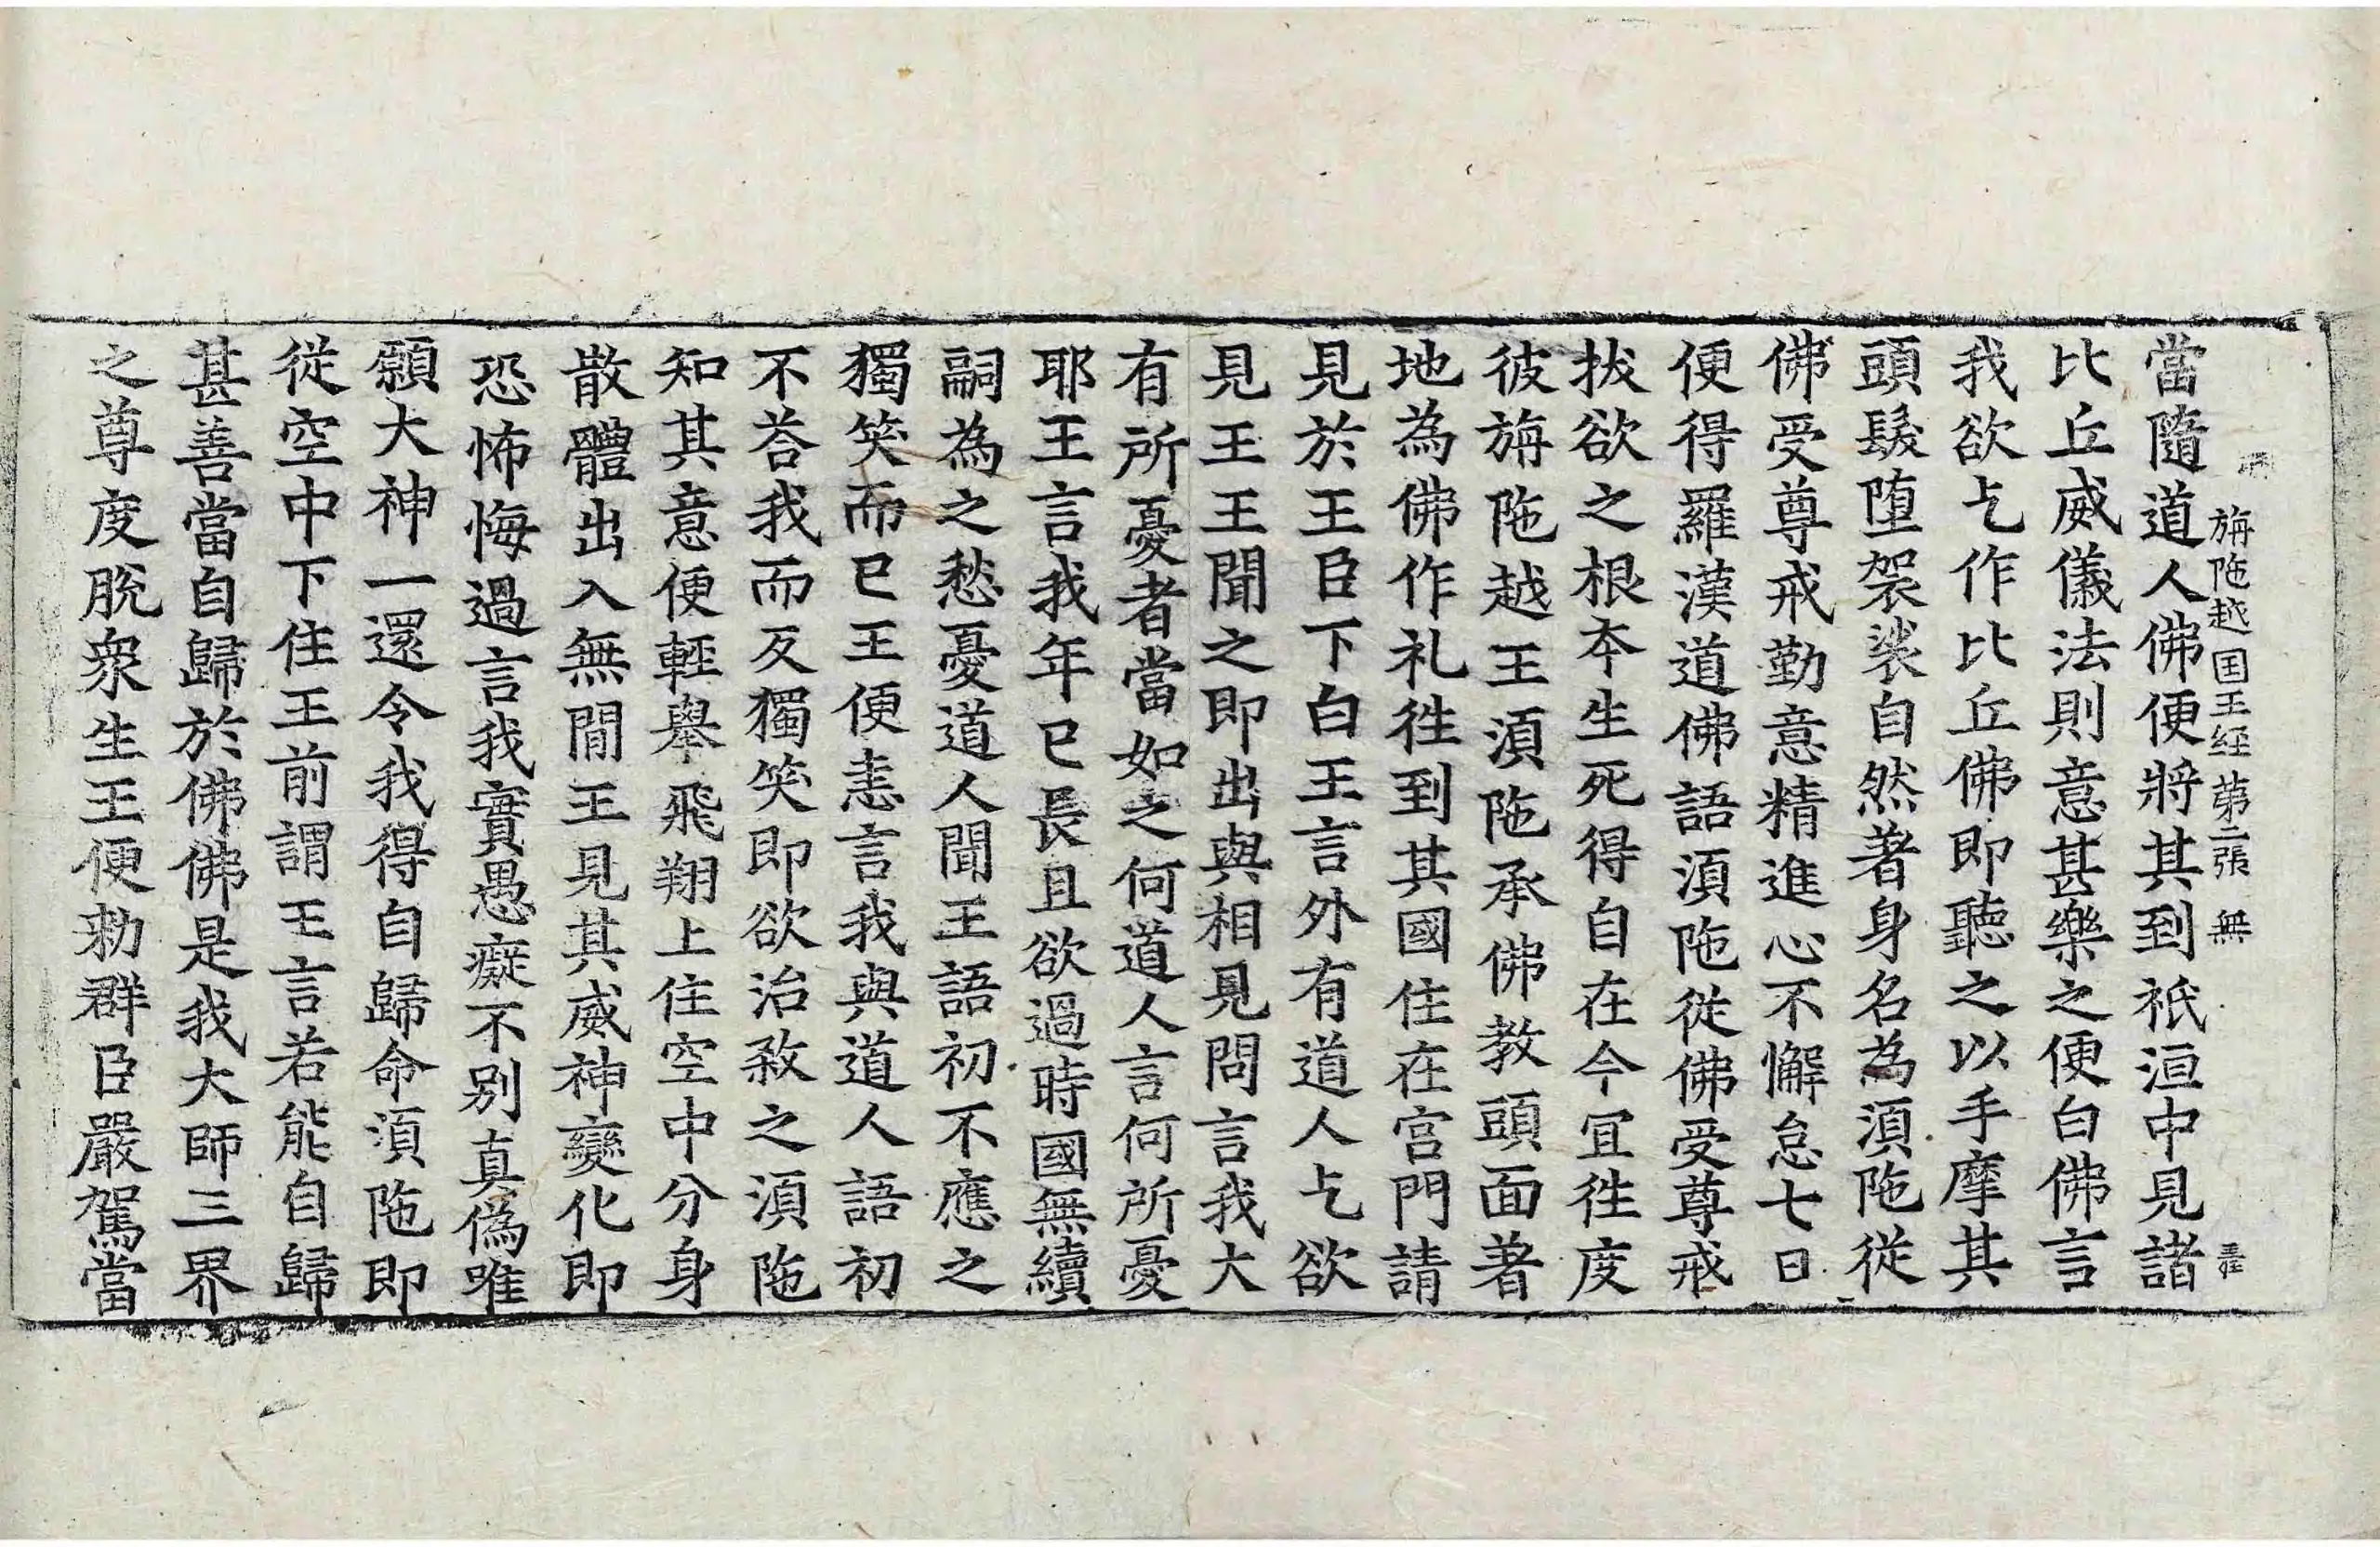 旃陁越国王経 第二張 無
當隨道人佛便將其到祇洹中見諸
比丘威儀法則意甚樂之便白佛言
我欲乞作比丘佛即聽之以手摩其
頭髮墮袈裟自然著身名為湏陁從
佛受尊戒勤意精進心不懈怠七日
便得羅漢道佛語湏陁從佛受尊戒
拔欲之根夲生死得自在今冝徃度
彼旃陁越王湏陁承佛教頭面著
地為佛作礼徃到其國住在宫門請
見於王臣下白王言外有道人乞欲
見王王聞之即出與相見問言我大
有所憂者當如之何道人言何所憂
耶王言我年已長且欲過時國無續
嗣為之愁憂道人聞王語初不應之
獨笑而已王便恚言我與道人語初
不荅我而反獨笑即欲治殺之湏陁
知其意便輕舉飛翔上住空中分身
散體出入無間王見其威神變化即
恐怖悔過言我實愚癡不别真偽唯
願大神一還令我得自歸命湏陁即
從空中下住王前謂王言若能自歸
甚善當自歸於佛佛是我大師三界
之尊度脫衆生王便勑群臣嚴駕當